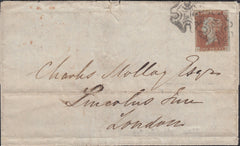 Charles Molloy Esqre
Lincolns Inn
London